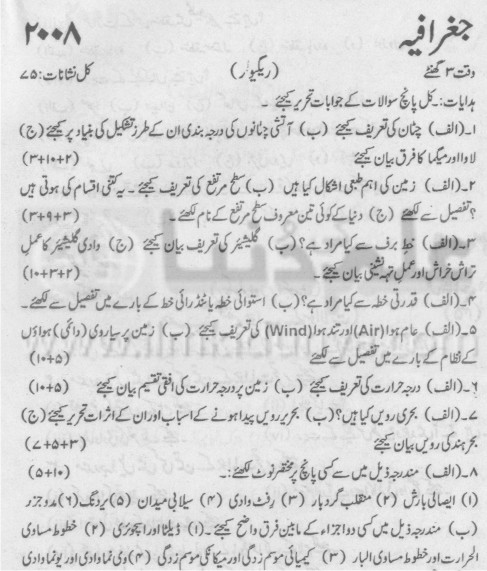 جغرافیہ
۲۰۰۸
وقت ۳ گھنٹے (ریگیولر) کل نشانات: ۷۵
ہدایات:۔ کل پانچ سوالات کے جوابات تحریر کیجئے۔
۱۔ (الف) چٹان کی تعریف کیجئے (ب) آتشی چٹانوں کی درجہ بندی ان کے طرز تشکیل کی بنیاد پر کیجئے (ج)
لاوا اور میگما کا فرق بیان کیجئے (۳+۱۰+۲)
۲۔ (الف) زمین کی اہم طبعی اشکال کیا ہیں (ب) سطح مرتفع کی تعریف کیجئے۔ یہ کتنی اقسام کی ہوتی ہیں
؟ تفصیل سے لکھئے (ج) دنیا کے کوئی تین معروف سطح مرتفع کے نام لکھئے۔ (۳+۹+۳)
۳۔ (الف) خط برف سے کیا مراد ہے؟ (ب) گلیشیئر کی تعریف بیان کیجئے (ج) وادی گلیشیئر کا عمل
تراش خراش اور عمل تہہ نشینی بیان کیجئے۔ (۱۰+۳+۲)
۴۔ (الف) قدرتی خطہ سے کیا مراد ہے؟ (ب) استوائی خطہ یا ٹنڈرائی خطہ کے بارے میں تفصیل سے لکھئے۔
۵۔ (الف) عام ہوا (Air) اور تند ہوا (Wind) کی تعریف کیجئے (ب) زمین پر سیاروی (دائمی) ہواؤں
کے نظام کے بارے میں تفصیل سے لکھئے (۱۰+۵)
۶۔ (الف) درجہ حرارت کی تعریف کیجئے (ب) زمین پر درجہ حرارت کی افقی تقسیم بیان کیجئے (۱۰+۵)
۷۔ (الف) بحری رویں کیا ہیں؟ (ب) بحری رویں پیدا ہونے کے اسباب اور ان کے اثرات تحریر کیجئے (ج)
بحر ہند کی رویں بیان کیجئے (۷+۵+۳)
۸۔ (الف) مندرجہ ذیل میں سے کسی پانچ پر مختصر نوٹ لکھئے:۔ (۵+۱۰)
(۱) ایصالی بارش (۲) منقلب گردباد (۳) رفٹ وادی (۴) سیلابی میدان (۵) بردنگ (۶) مدوجزر
(ب) مندرجہ ذیل میں کسی دو اجزاء کے مابین فرق واضح کیجئے۔ (۱) ڈیلٹا اور ایچوری (۲) خطوط مساوی
الحرارت اور خطوط مساوی البار (۳) کیمیائی موسم زدگی اور میکانکی موسم زدگی (۴) وی نما وادی اور یو نما وادی